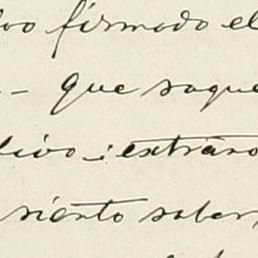 firmado el
- que saque
tivo; extraño
siento saber,